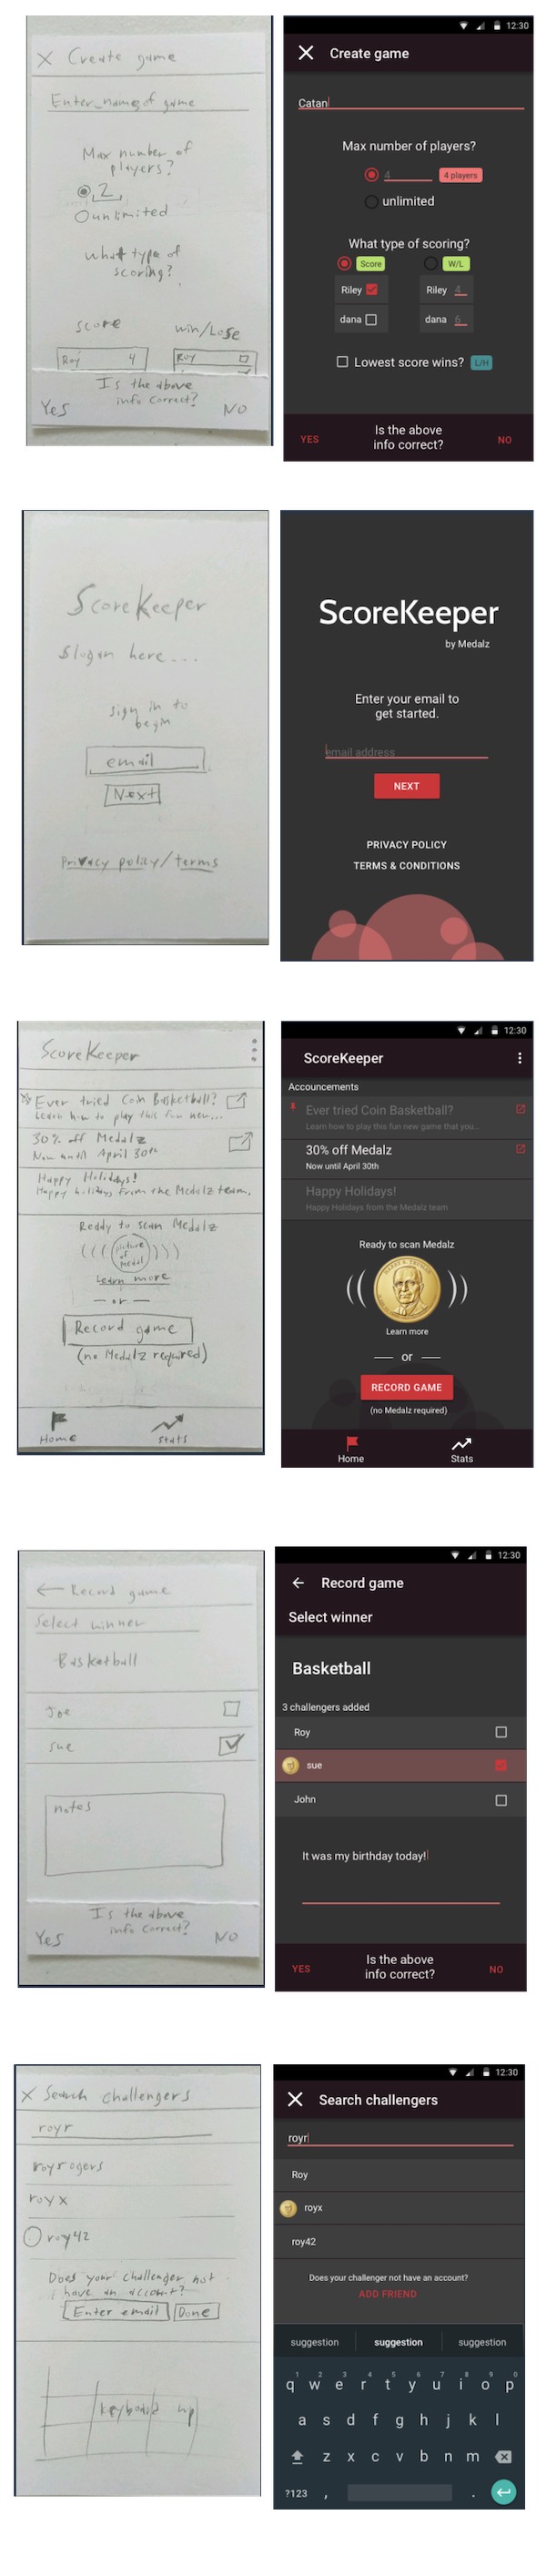 X Create game
Enter name of game
Max number of
players?
2
unlimited
what type of
scoring?
score
win/Lose
Roy 4
Roy
Is the above
info correct?
Yes
NO
12:30
Create game
Catan
Max number of players?
4
4 players
unlimited
What type of scoring?
Score
W/L
Riley
Riley 4
dana
dana 6
Lowest score wins?
L/H
YES
Is the above
info correct?
NO
ScoreKeeper
Slogan here...
sign in to
begin
email
Next
Privacy policy/terms
ScoreKeeper
by Medalz
Enter your email to
get started.
email address
NEXT
PRIVACY POLICY
TERMS & CONDITIONS
ScoreKeeper
Ever tried Coin Basketball?
Learn how to play this fun new...
30% off Medalz
Now until April 30th
Happy Holidays!
Happy holidays from the Medalz team.
Ready to scan Medalz
picture
of
medal
Learn more
or
Record game
(no Medalz required)
Home
Stats
12:30
ScoreKeeper
Accouncements
Ever tried Coin Basketball?
Learn how to play this fun new game that you...
30% off Medalz
Now until April 30th
Happy Holidays!
Happy Holidays from the Medalz team
Ready to scan Medalz
Learn more
or
RECORD GAME
(no Medalz required)
Home
Stats
← Record game
Select winner
Basketball
Joe
sue
notes
Is the above
info correct?
Yes
NO
12:30
Record game
Select winner
Basketball
3 challengers added
Roy
sue
John
It was my birthday today!
YES
Is the above
info correct?
NO
X Search challengers
royr
royrogers
royx
roy42
Does your challenger not
have an account?
Enter email
Done
keyboard up
12:30
Search challengers
royr
Roy
royx
roy42
Does your challenger not have an account?
ADD FRIEND
suggestion suggestion suggestion
1 2 3 4 5 6 7 8 9 0
q w e r t y u i o p
a s d f g h j k l
z x c v b n m
?123 , .